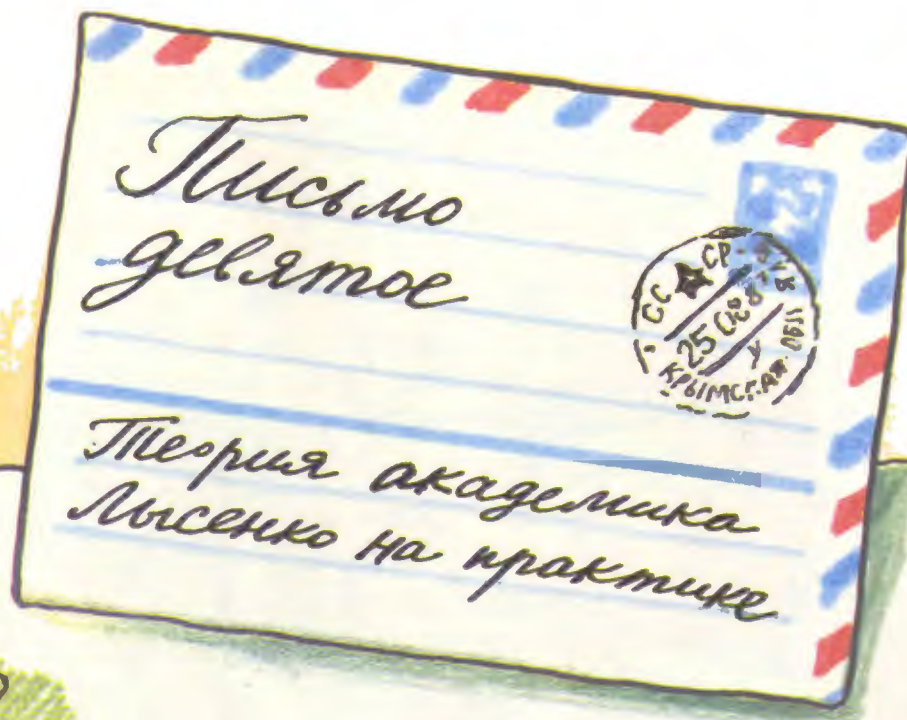 Письмо
девятое
СС СР
25
КРЫМСКАЯ ОБЛ
Теория академика
Лысенко на практике